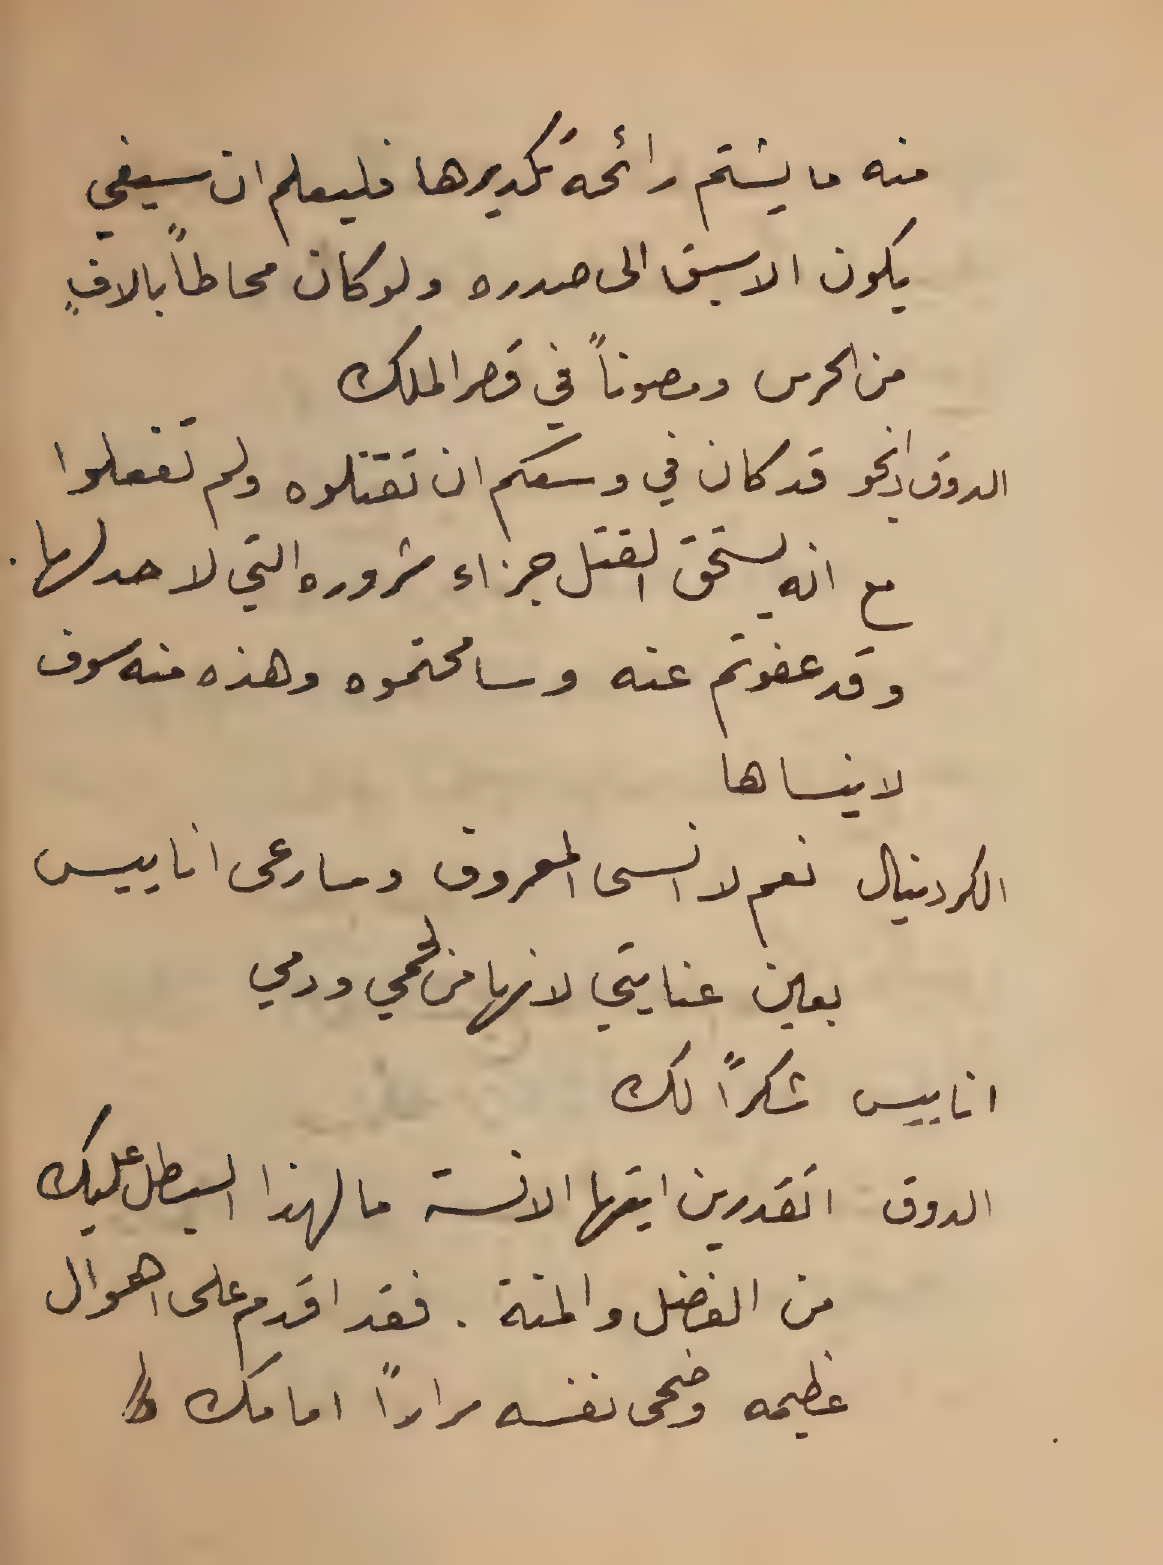 منه ما يشتم رائحة تكديرها فليعلم ان سيفي
يكون الاسبق الى صدره ولو كان محاطاً بالافٍ
من الحرس ومصوناً في قصر الملك
الدوق دانجو قد كان في وسعكم ان تقتلوه ولم تفعلوا
مع انه يستحق القتل جزاء شروره التي لا حد لها.
وقد عفوتم عنه وسامحتموه وهذه منه سوف
لا ينساها
الكردينال نعم لا انسى المعروف وسارعى اناييس
بعين عنايتي لانها من لحمي ودمي
اناييس شكراً لك
الدوق اتقدرين ايتها الانسة ما لهذا البطل عليك
من الفضل والمنة . فقد اقدم على اهوال
عظيمه وضحى نفسه مراراً امامك